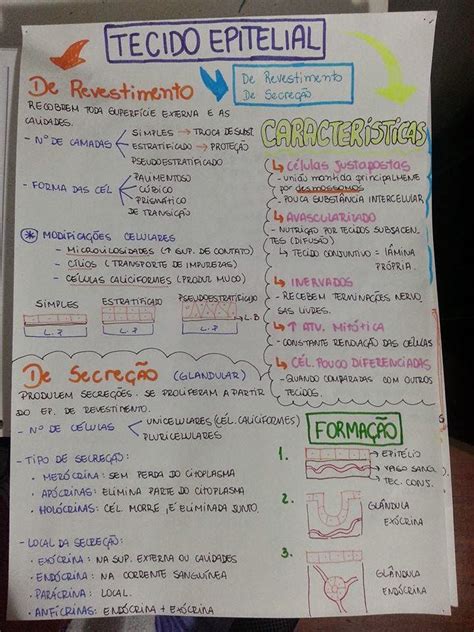 TECIDO EPITELIAL
De Revestimento
De Secreção
De Revestimento
RECOBREM TODA SUPERFÍCIE EXTERNA E AS
CAVIDADES.
- Nº DE CAMADAS
SIMPLES → TROCA DE SUBST.
ESTRATIFICADO → PROTEÇÃO
PSEUDOESTRATIFICADO
- FORMA DAS CÉL
PAVIMENTOSO
CÚBICO
PRISMÁTICO
DE TRANSIÇÃO
* MODIFICAÇÕES CELULARES
- MICROVILOSIDADES (↑ SUP. DE CONTATO)
- CÍLIOS (TRANSPORTE DE IMPUREZAS)
- CÉLULAS CALICIFORMES (PRODUZ MUCO)
SIMPLES ESTRATIFICADO PSEUDOESTRATIFICADO
L.B
L.P L.P L.P
CARACTERÍSTICAS
↳ CÉLULAS JUSTAPOSTAS
- UNIÃO MANTIDA PRINCIPALMENTE
POR DESMOSSOMOS
- POUCA SUBSTÂNCIA INTERCELULAR
↳ AVASCULARIZADO
- NUTRIÇÃO POR TECIDOS SUBJACEN-
TES (DIFUSÃO)
↳ TECIDO CONJUNTIVO = LÂMINA
PRÓPRIA.
↳ INERVADOS
- RECEBEM TERMINAÇÕES NERVO
SAS LIVRES.
↳ ↑ ATV. MITÓTICA
- CONSTANTE RENOVAÇÃO DAS CÉLULAS
↳ CÉL. POUCO DIFERENCIADAS
- QUANDO COMPARADAS COM OUTROS
TECIDOS.
De Secreção (GLANDULAR)
PRODUZEM SECREÇÕES. SE PROLIFERAM A PARTIR
DO EP. DE REVESTIMENTO.
- Nº DE CÉLULAS
UNICELULARES (CÉL. CALICIFORMES)
PLURICELULARES
- TIPO DE SECREÇÃO:
• MERÓCRINA: SEM PERDA DO CITOPLASMA
• APÓCRINAS: ELIMINA PARTE DO CITOPLASMA
• HOLÓCRINAS: CÉL MORRE, É ELIMINADA JUNTO.
- LOCAL DA SECREÇÃO:
• EXÓCRINA: NA SUP. EXTERNA OU CAVIDADES
• ENDÓCRINA: NA CORRENTE SANGUÍNEA
• PARÁCRINA: LOCAL.
• ANFÍCRINAS: ENDÓCRINA + EXÓCRINA
FORMAÇÃO
1.
EPITÉLIO
VASO SANG.
TEC. CONJ.
2.
GLÂNDULA
EXÓCRINA
3.
GLÂNDULA
ENDÓCRINA